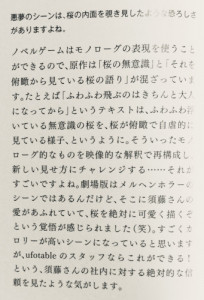 悪夢のシーンは、桜の内面を覗き見したような恐ろしさ
がありますよね。
ノベルゲームはモノローグの表現を使うこと
ができるので、原作は「桜の無意識」と「それを
俯瞰から見ている桜の語り」が混ざっていま
す。たとえば「ふわふわ飛ぶのはきちんと大人
になってから」というテキストは、ふわふわ浮
いている無意識の桜を、桜が俯瞰で自虐的に
見ている様子、というように。そういったモノ
ローグ的なものを映像的な解釈で再構成し、
新しい見せ方にチャレンジする……それが
すごいですよね。劇場版はメルヘンホラーの
シーンではあるんだけど、そこに須藤さんの
愛があふれていて、桜を絶対に可愛く描くぞ
という覚悟が感じられました（笑）。すごくカ
ロリーが高いシーンになっていると思います
が、ufotableのスタッフならこれができる！
という、須藤さんの社内に対する絶対的な信
頼を見たような気がします。